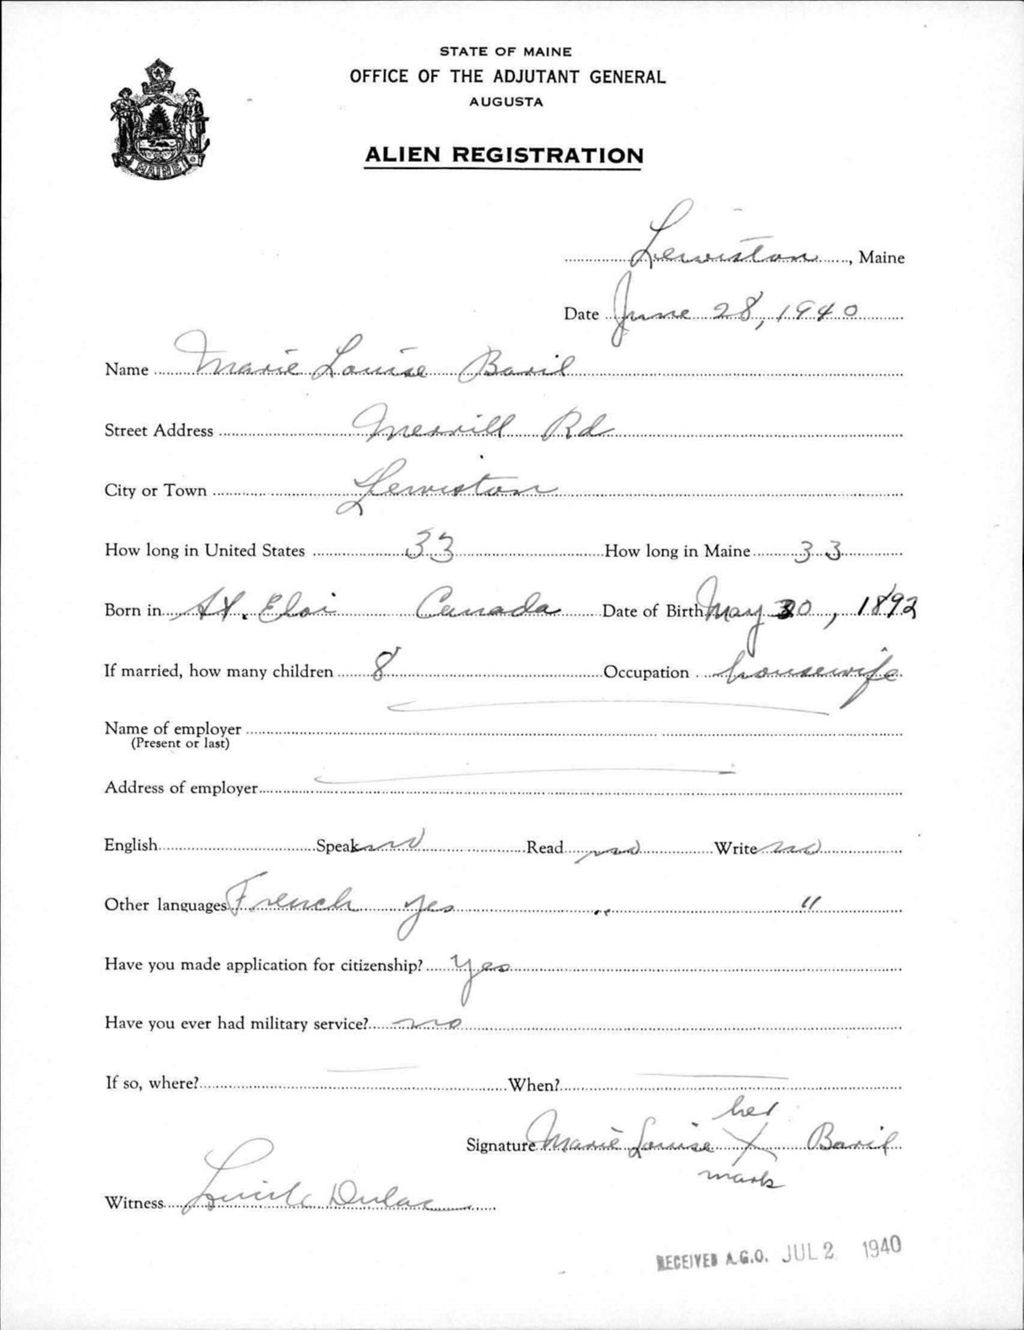 STATE OF MAINE
OFFICE OF THE ADJUTANT GENERAL
AUGUSTA
ALIEN REGISTRATION
MAINE
Lewiston, Maine
Date June 28, 1940
Name Marie Louise Baril
Street Address Merrill Rd
City or Town Lewiston
How long in United States 33 How long in Maine 33
Born in St. Eloi Canada Date of Birth May 30, 1892
If married, how many children 8 Occupation housewife
Name of employer
(Present or last)
Address of employer
English Speak no Read no Write no
Other languages French yes " "
Have you made application for citizenship? Yes
Have you ever had military service? no
If so, where? When?
her
Signature Marie Louise X Baril
mark
Witness Dulac
RECEIVED A.G.O. JUL 2 1940